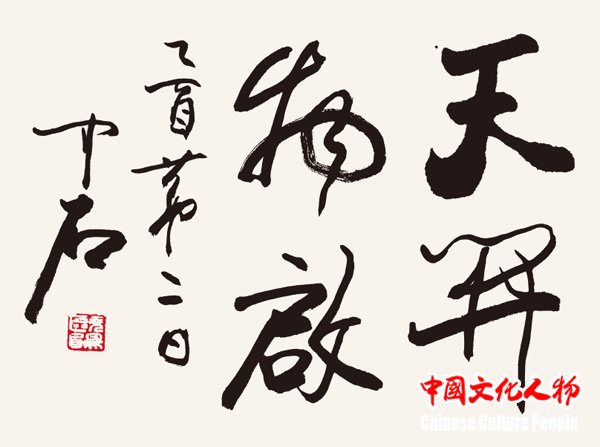 天開
物啟
乙酉第二日
中石
中國文化人物
Chinese Culture People